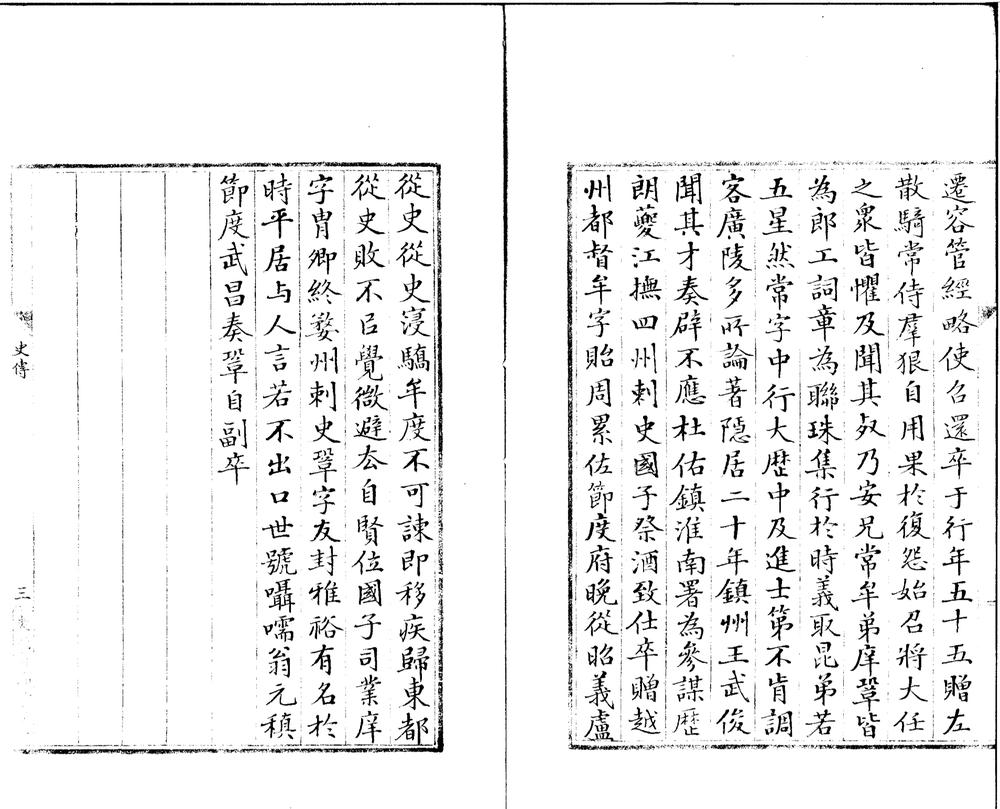 遷容管經略使召還卒于行年五十五贈左
散騎常侍羣狠自用果於復怨始召將大任
之衆皆懼及聞其歿乃安兄常牟弟庠鞏皆
為郎工詞章為聯珠集行於時義取昆弟若
五星然常字中行大歴中及進士第不肯調
客廣陵多所論著隱居二十年鎮州王武俊
聞其才奏辟不應杜佑鎮淮南署為參謀歴
朗夔江撫四州刺史國子祭酒致仕卒贈越
州都督牟字貽周累佐節度府晚從昭義盧
從史從史寖驕牟度不可諫即移疾歸東都
從史敗不㠯覺微避去自賢位國子司業庠
字冑卿終婺州刺史鞏字友封雅裕有名於
時平居与人言若不出口世號囁嚅翁元稹
節度武昌奏鞏自副卒
史傳
三